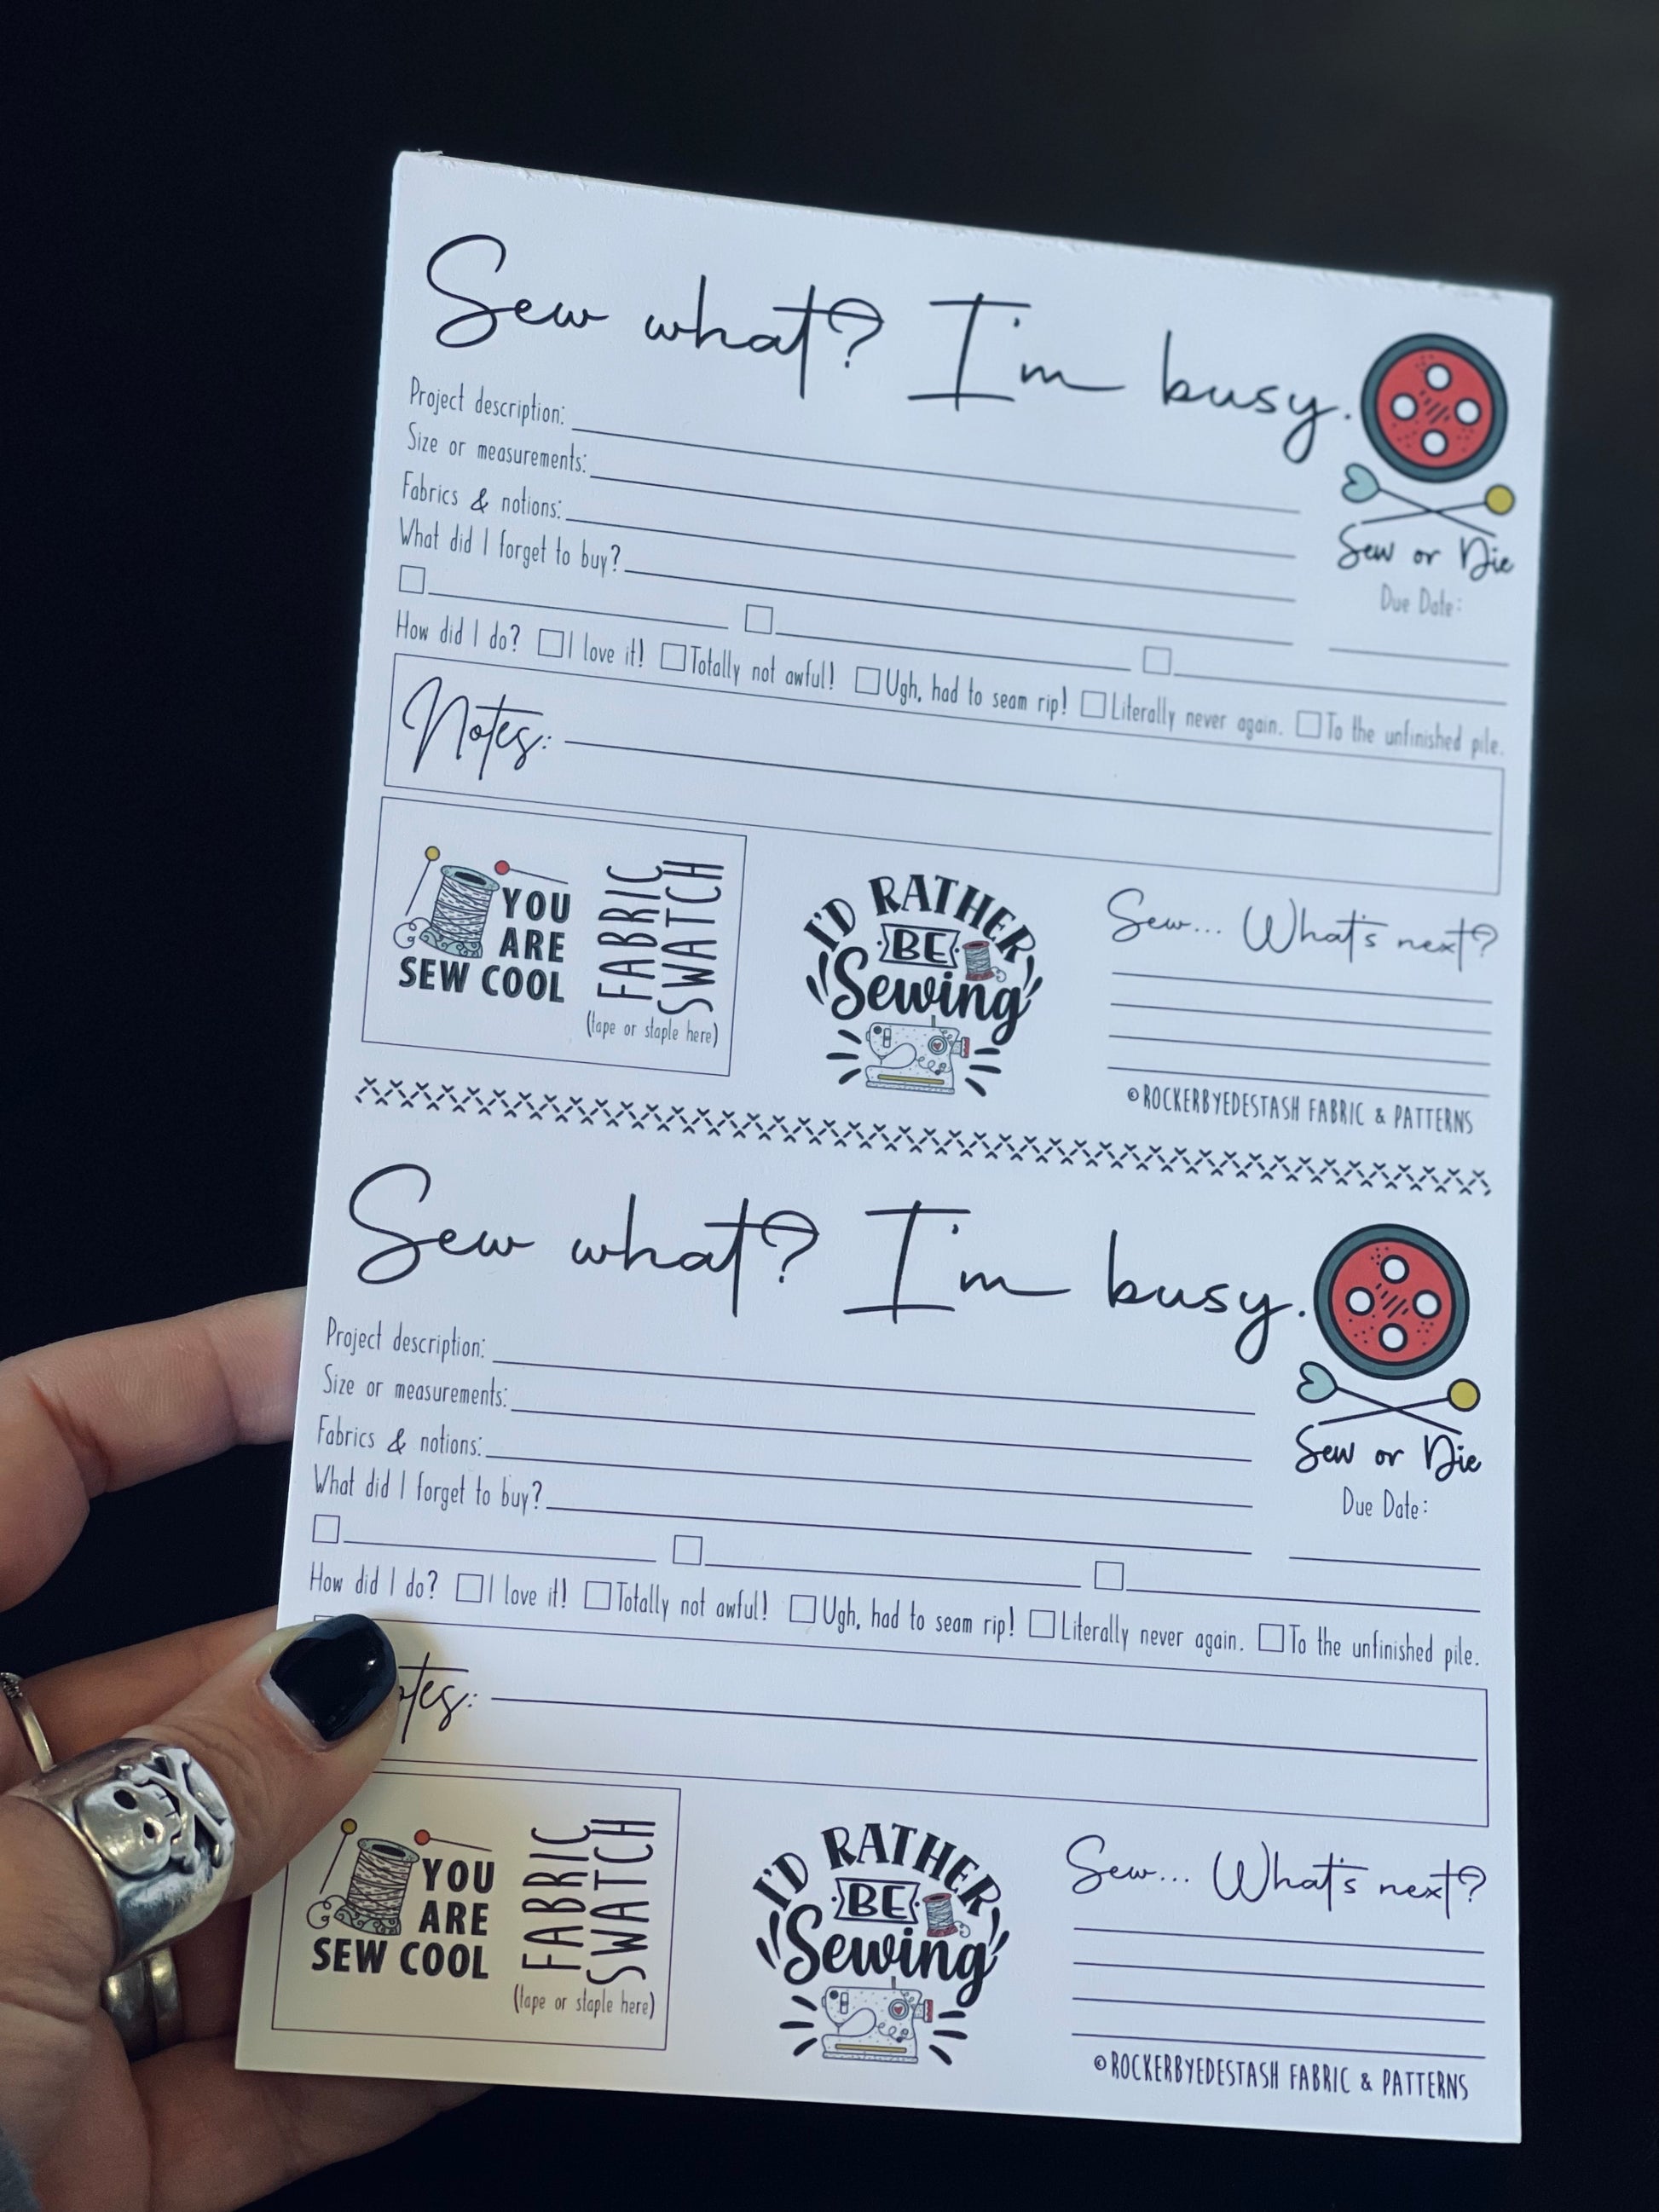 Sew what? I'm busy.
Project description:
Size or measurements:
Fabrics & notions:
What did I forget to buy?
Sew or Die
Due Date:
How did I do? I love it! Totally not awful! Ugh, had to seam rip! Literally never again. To the unfinished pile.
Notes:
YOU
ARE
SEW COOL
FABRIC
SWATCH
(tape or staple here)
I'D RATHER
BE
Sewing
Sew... What's next?
©ROCKERBYEDESTASH FABRIC & PATTERNS
Sew what? I'm busy.
Project description:
Size or measurements:
Fabrics & notions:
What did I forget to buy?
Sew or Die
Due Date:
How did I do? I love it! Totally not awful! Ugh, had to seam rip! Literally never again. To the unfinished pile.
otes:
YOU
ARE
SEW COOL
FABRIC
SWATCH
(tape or staple here)
I'D RATHER
BE
Sewing
Sew... What's next?
©ROCKERBYEDESTASH FABRIC & PATTERNS